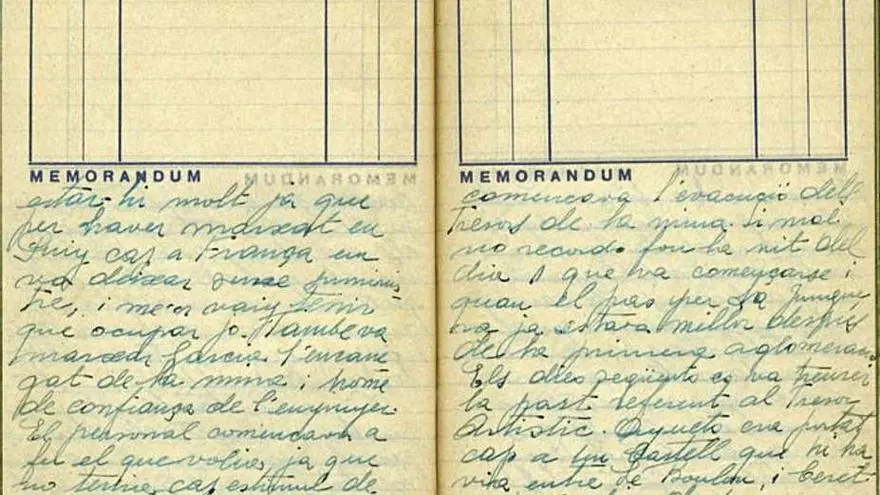 MEMORANDUM
estar-hi molt ja que
per haver marxat en
Puig cap a França em
va deixar sense suminis-
tre, i me'n vaig tenir
que ocupar jo. Tambe va
marxar Garcia l'encarre
gat de la mina i home
de confiança de l'enginyer.
El personal començava a
fer el que volia, ja que
no tenia cap estimul de
MEMORANDUM
començava l'evacuació dels
tresors de la mina. Si mal
no recordo fou la nit del
dia 1 que va començarse i
quan el pas per La Junque
ra ja estava millor despres
de la primera aglomeracio
Els dies següents es va treurer
la part referent al Tresor
Artistic. Aquets era portat
cap a un Castell que hi ha
via entre Le Boulou, i Ceret.